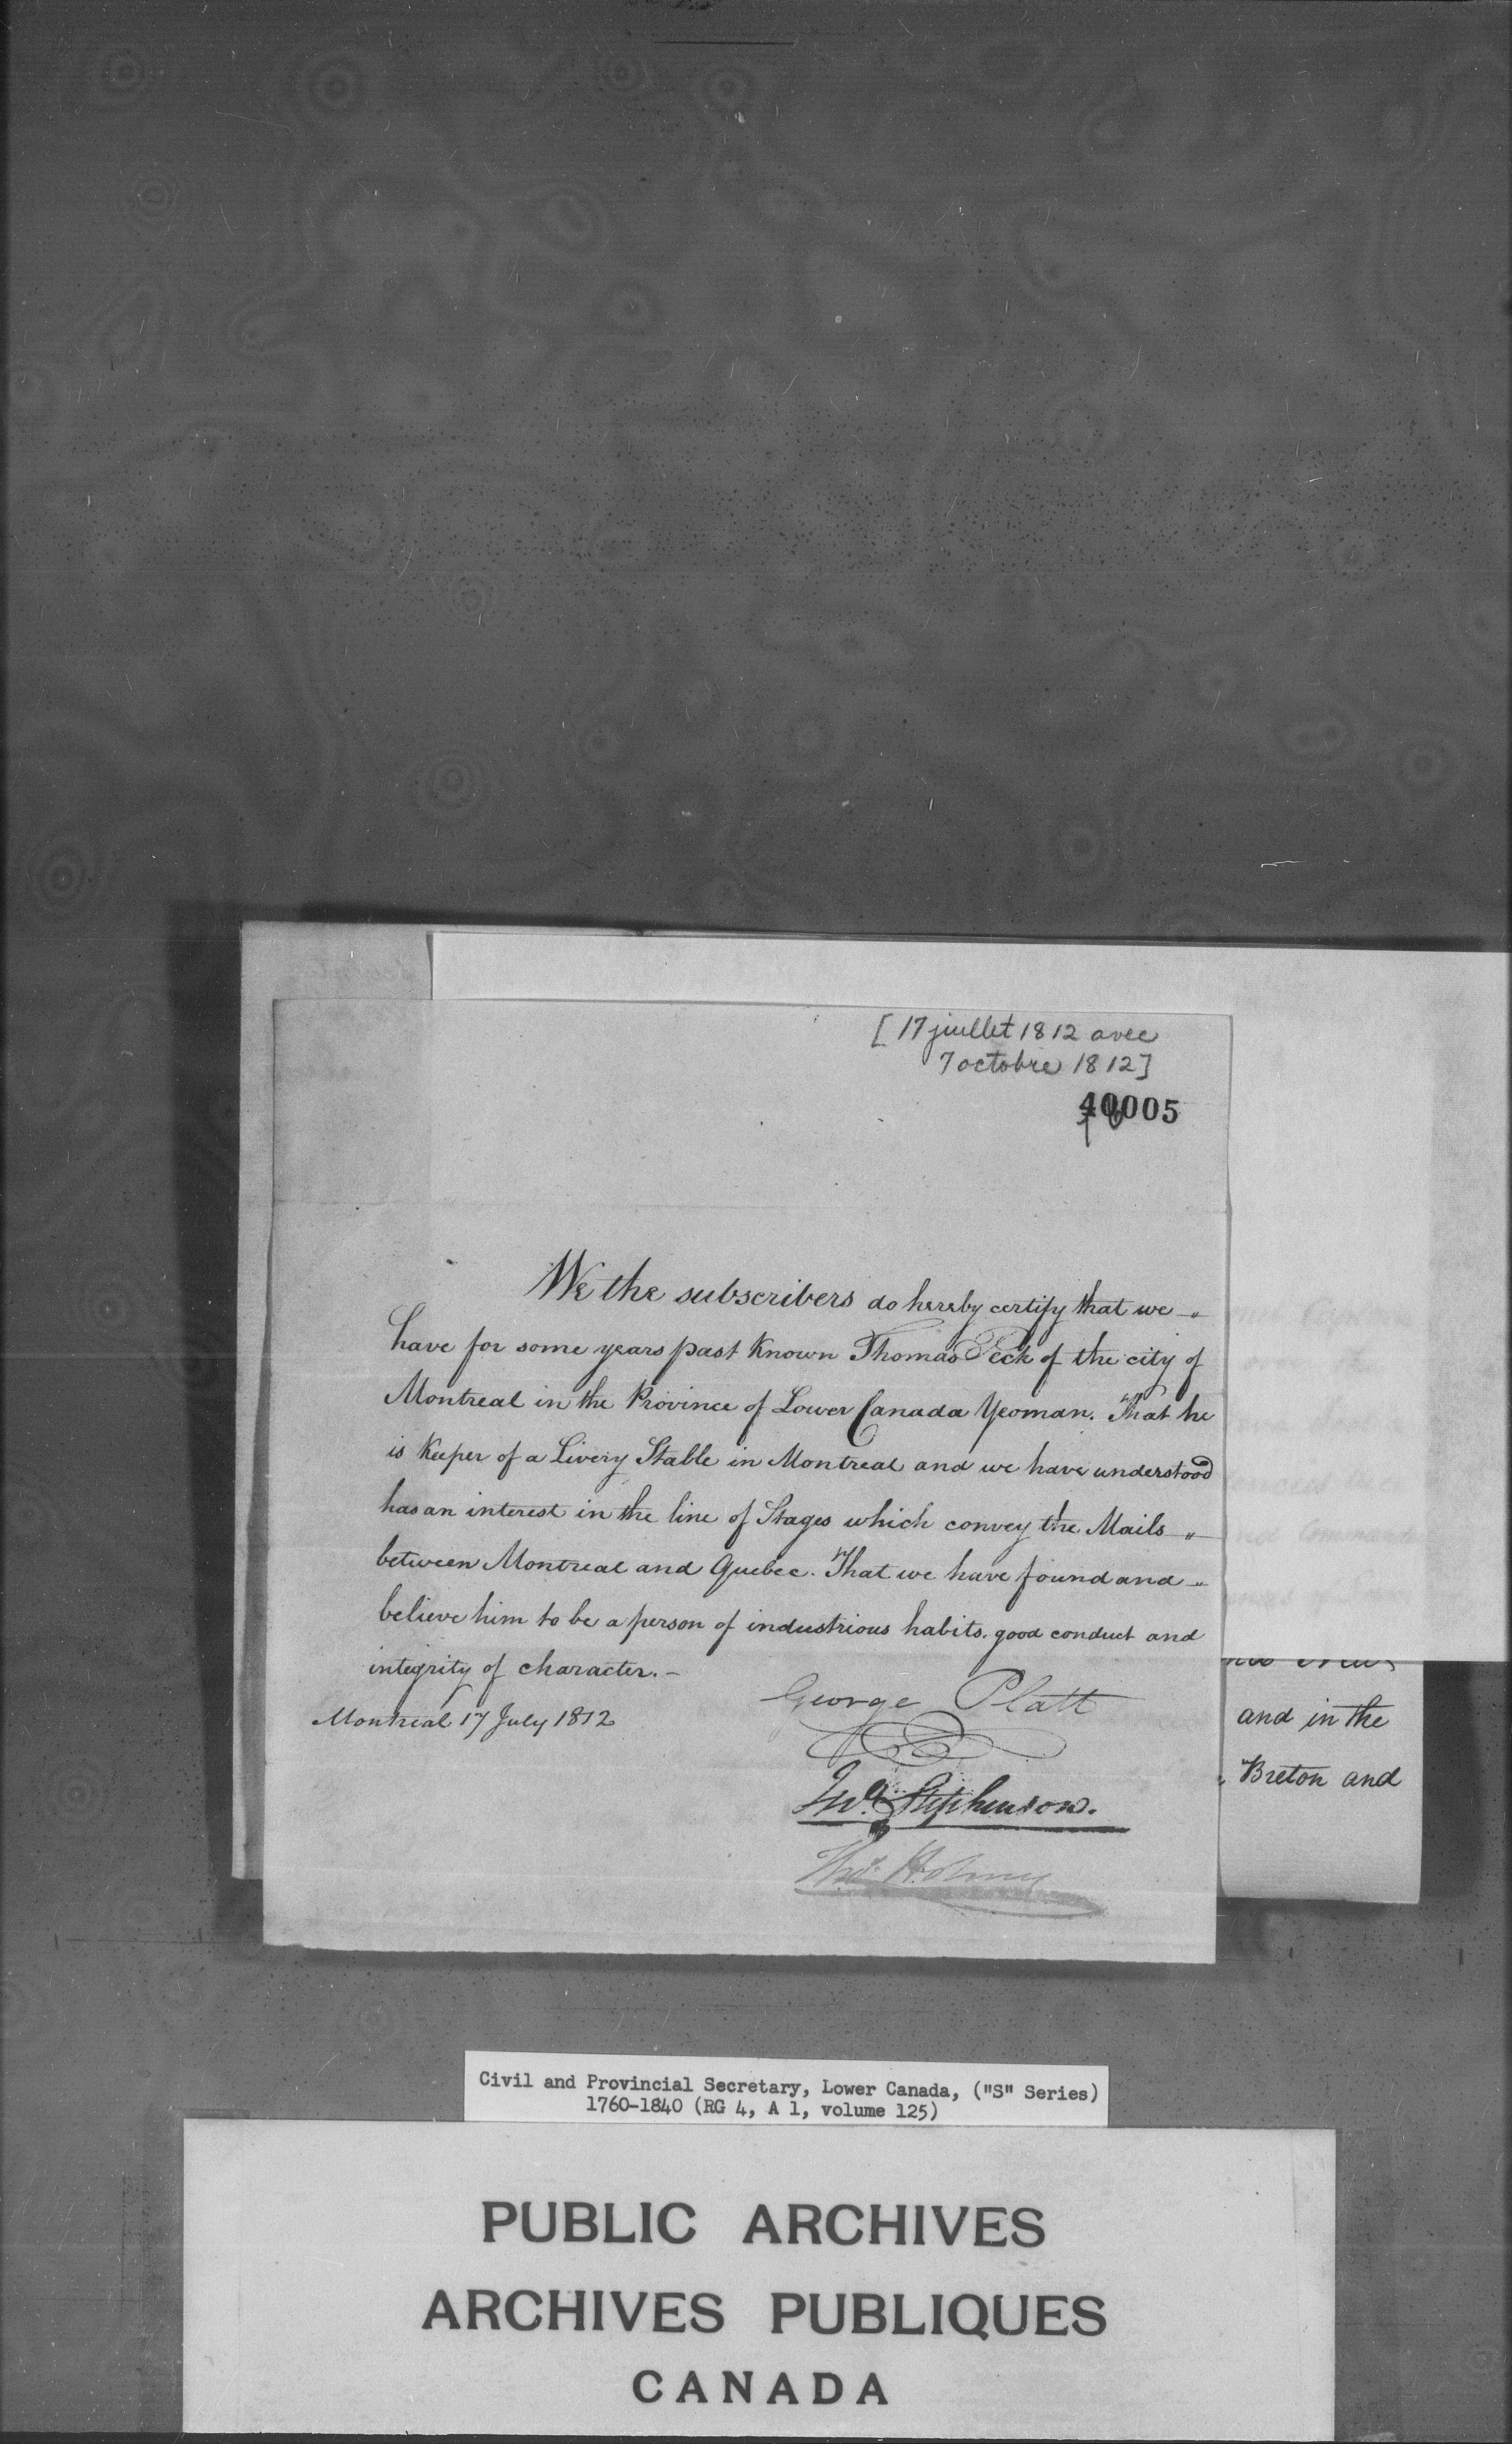 [ 17 juillet 1812 avec
7 octobre 1812]
40005
We the subscribers do hereby certify that we
have for some years past known Thomas Peck of the city of
Montreal in the Province of Lower Canada Yeoman. That he
is Keeper of a Livery Stable in Montreal and we have understood
has an interest in the line of Stages which convey the Mails
between Montreal and Quebec. That we have found and
believe him to be a person of industrious habits. good conduct and
integrity of character.
Montreal 17 July 1812
George Platt
Jno. Stephenson.
Thos. Holmes
and in the
Breton and
Civil and Provincial Secretary, Lower Canada, ("S" Series)
1760-1840 (RG 4, A 1, volume 125)
PUBLIC ARCHIVES
ARCHIVES PUBLIQUES
CANADA